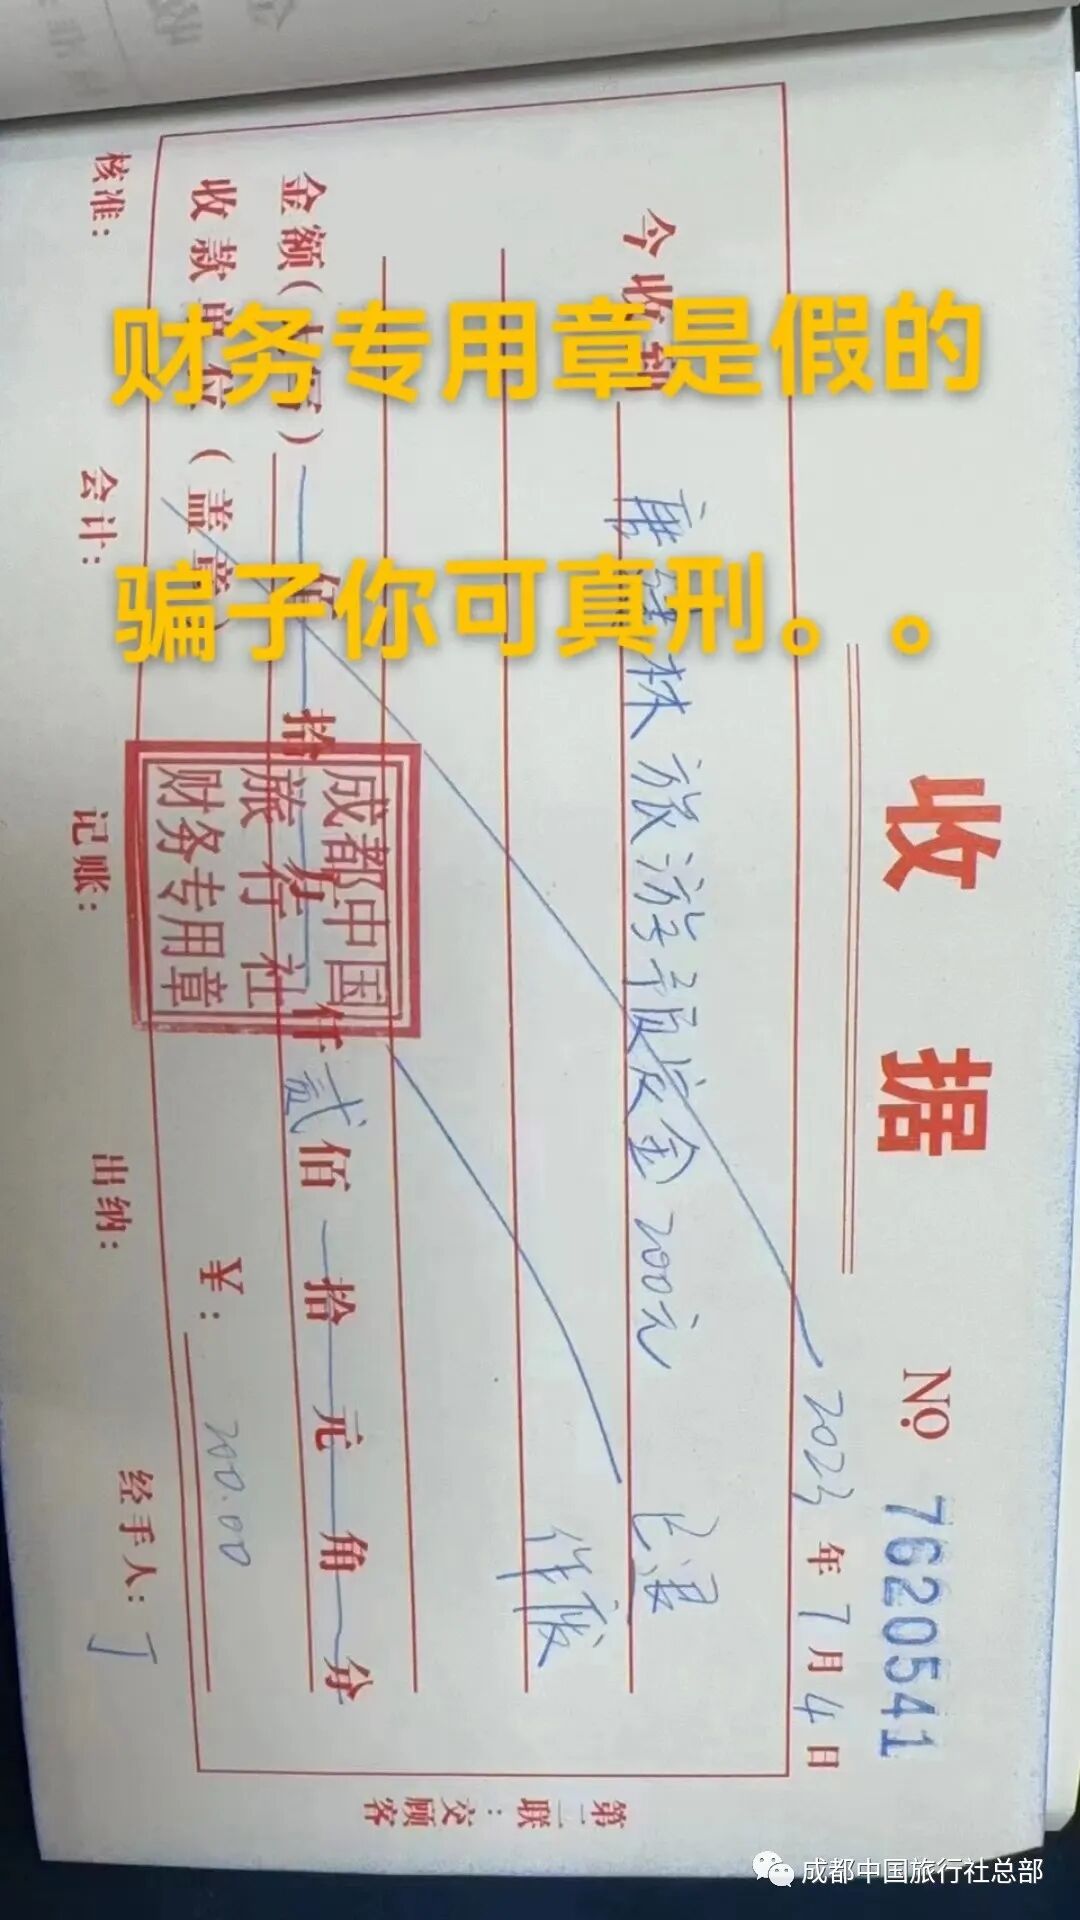 财务专用章是假的
骗子你可真刑。。
收据
№ 7620541
2023年7月4日
今收到
旅游预定金200元
已退
作废
金额(大写) 佰 拾 万 仟 贰 佰 拾 元 角 分
收款单位(盖章)
¥: 200.00
成都中国
旅行社
财务专用章
核准: 会计: 记账: 出纳: 经手人: 丁
第二联:交顾客
成都中国旅行社总部